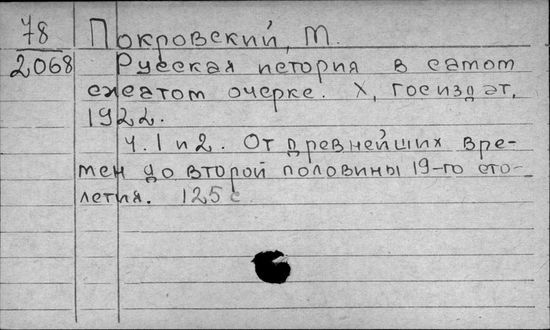 78
2068
Покровский, М.
Русская история в самом
сжатом очерке. Х, Госиздат,
1922.
Ч. 1 и 2. От древнейших вре-
мен до второй половины 19-го сто-
летия. 125 с